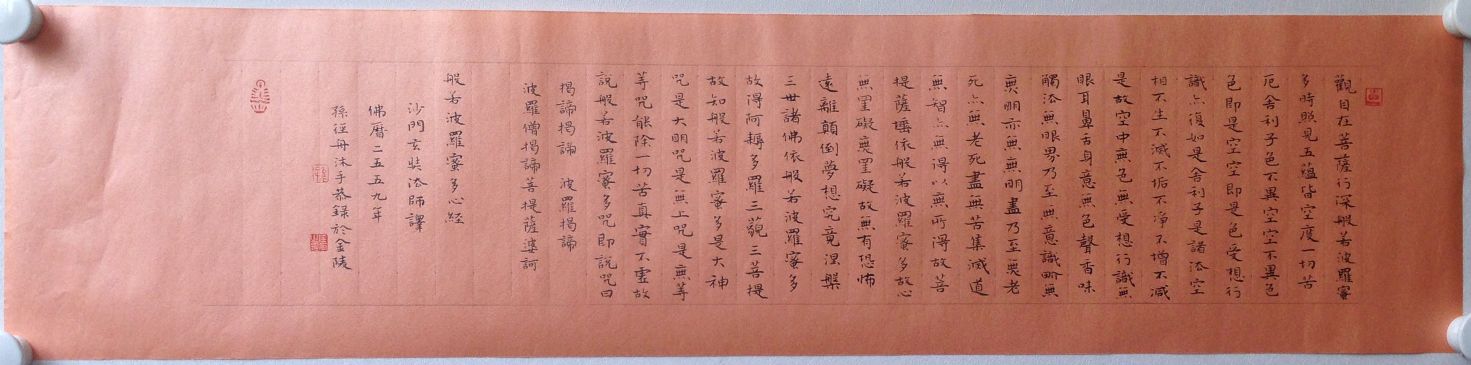 觀自在菩薩行深般若波羅蜜
多時照見五蘊皆空度一切苦
厄舍利子色不異空空不異色
色即是空空即是色受想行
識亦復如是舍利子是諸法空
相不生不滅不垢不淨不增不減
是故空中無色無受想行識無
眼耳鼻舌身意無色聲香味
觸法無眼界乃至無意識界無
無明亦無無明盡乃至無老
死亦無老死盡無苦集滅道
無智亦無得以無所得故菩
提薩埵依般若波羅蜜多故心
無罣礙無罣礙故無有恐怖
遠離顛倒夢想究竟涅槃
三世諸佛依般若波羅蜜多
故得阿耨多羅三藐三菩提
故知般若波羅蜜多是大神
咒是大明咒是無上咒是無等
等咒能除一切苦真實不虛故
說般若波羅蜜多咒即說咒曰
揭諦揭諦 波羅揭諦
波羅僧揭諦菩提薩婆訶
般若波羅蜜多心經
沙門玄奘法師譯
佛曆二五五九年
孫徑舟沐手恭錄於金陵